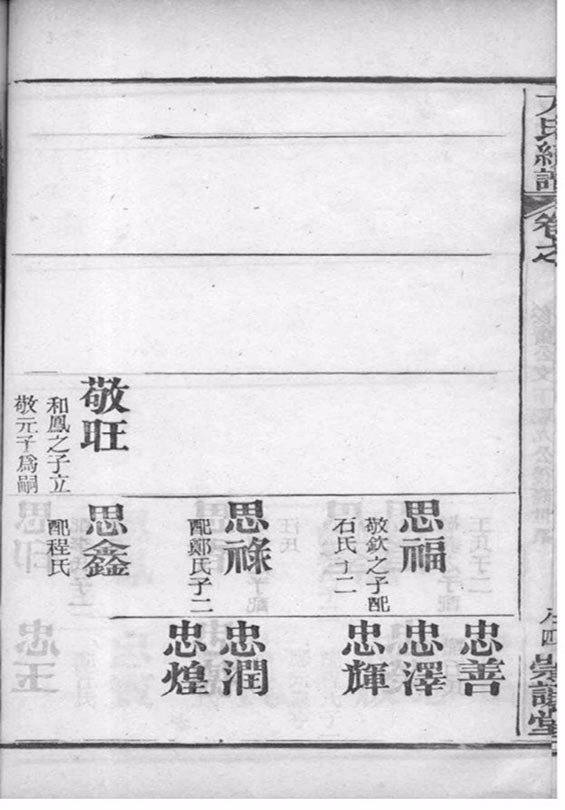 卷之
敬旺
和鳳之子立
敬元子爲嗣
思福
敬欽之子配
石氏子二
思祿
配鄭氏子二
思鑫
配程氏
忠善
忠澤
忠輝
忠潤
忠煌